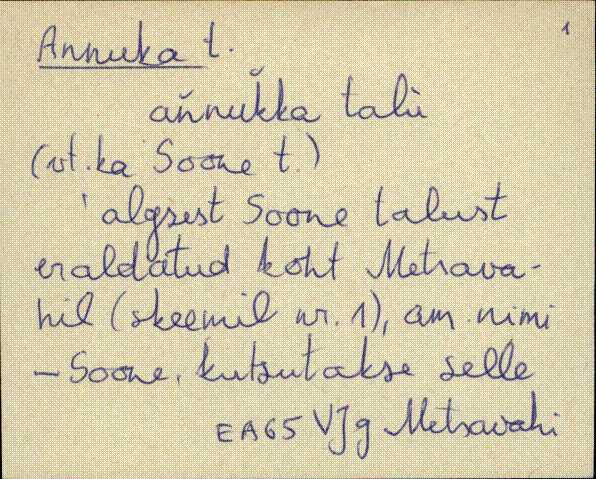 1
Annuka t.
ańnuk̆ka talu̇
(vt. ka Soone t.)
'algsest Soone talust
eraldatud koht Metsava-
hil (skeemil nr. 1), am. nimi
– Soone, kutsutakse selle
EA65 VJg Metsavahi